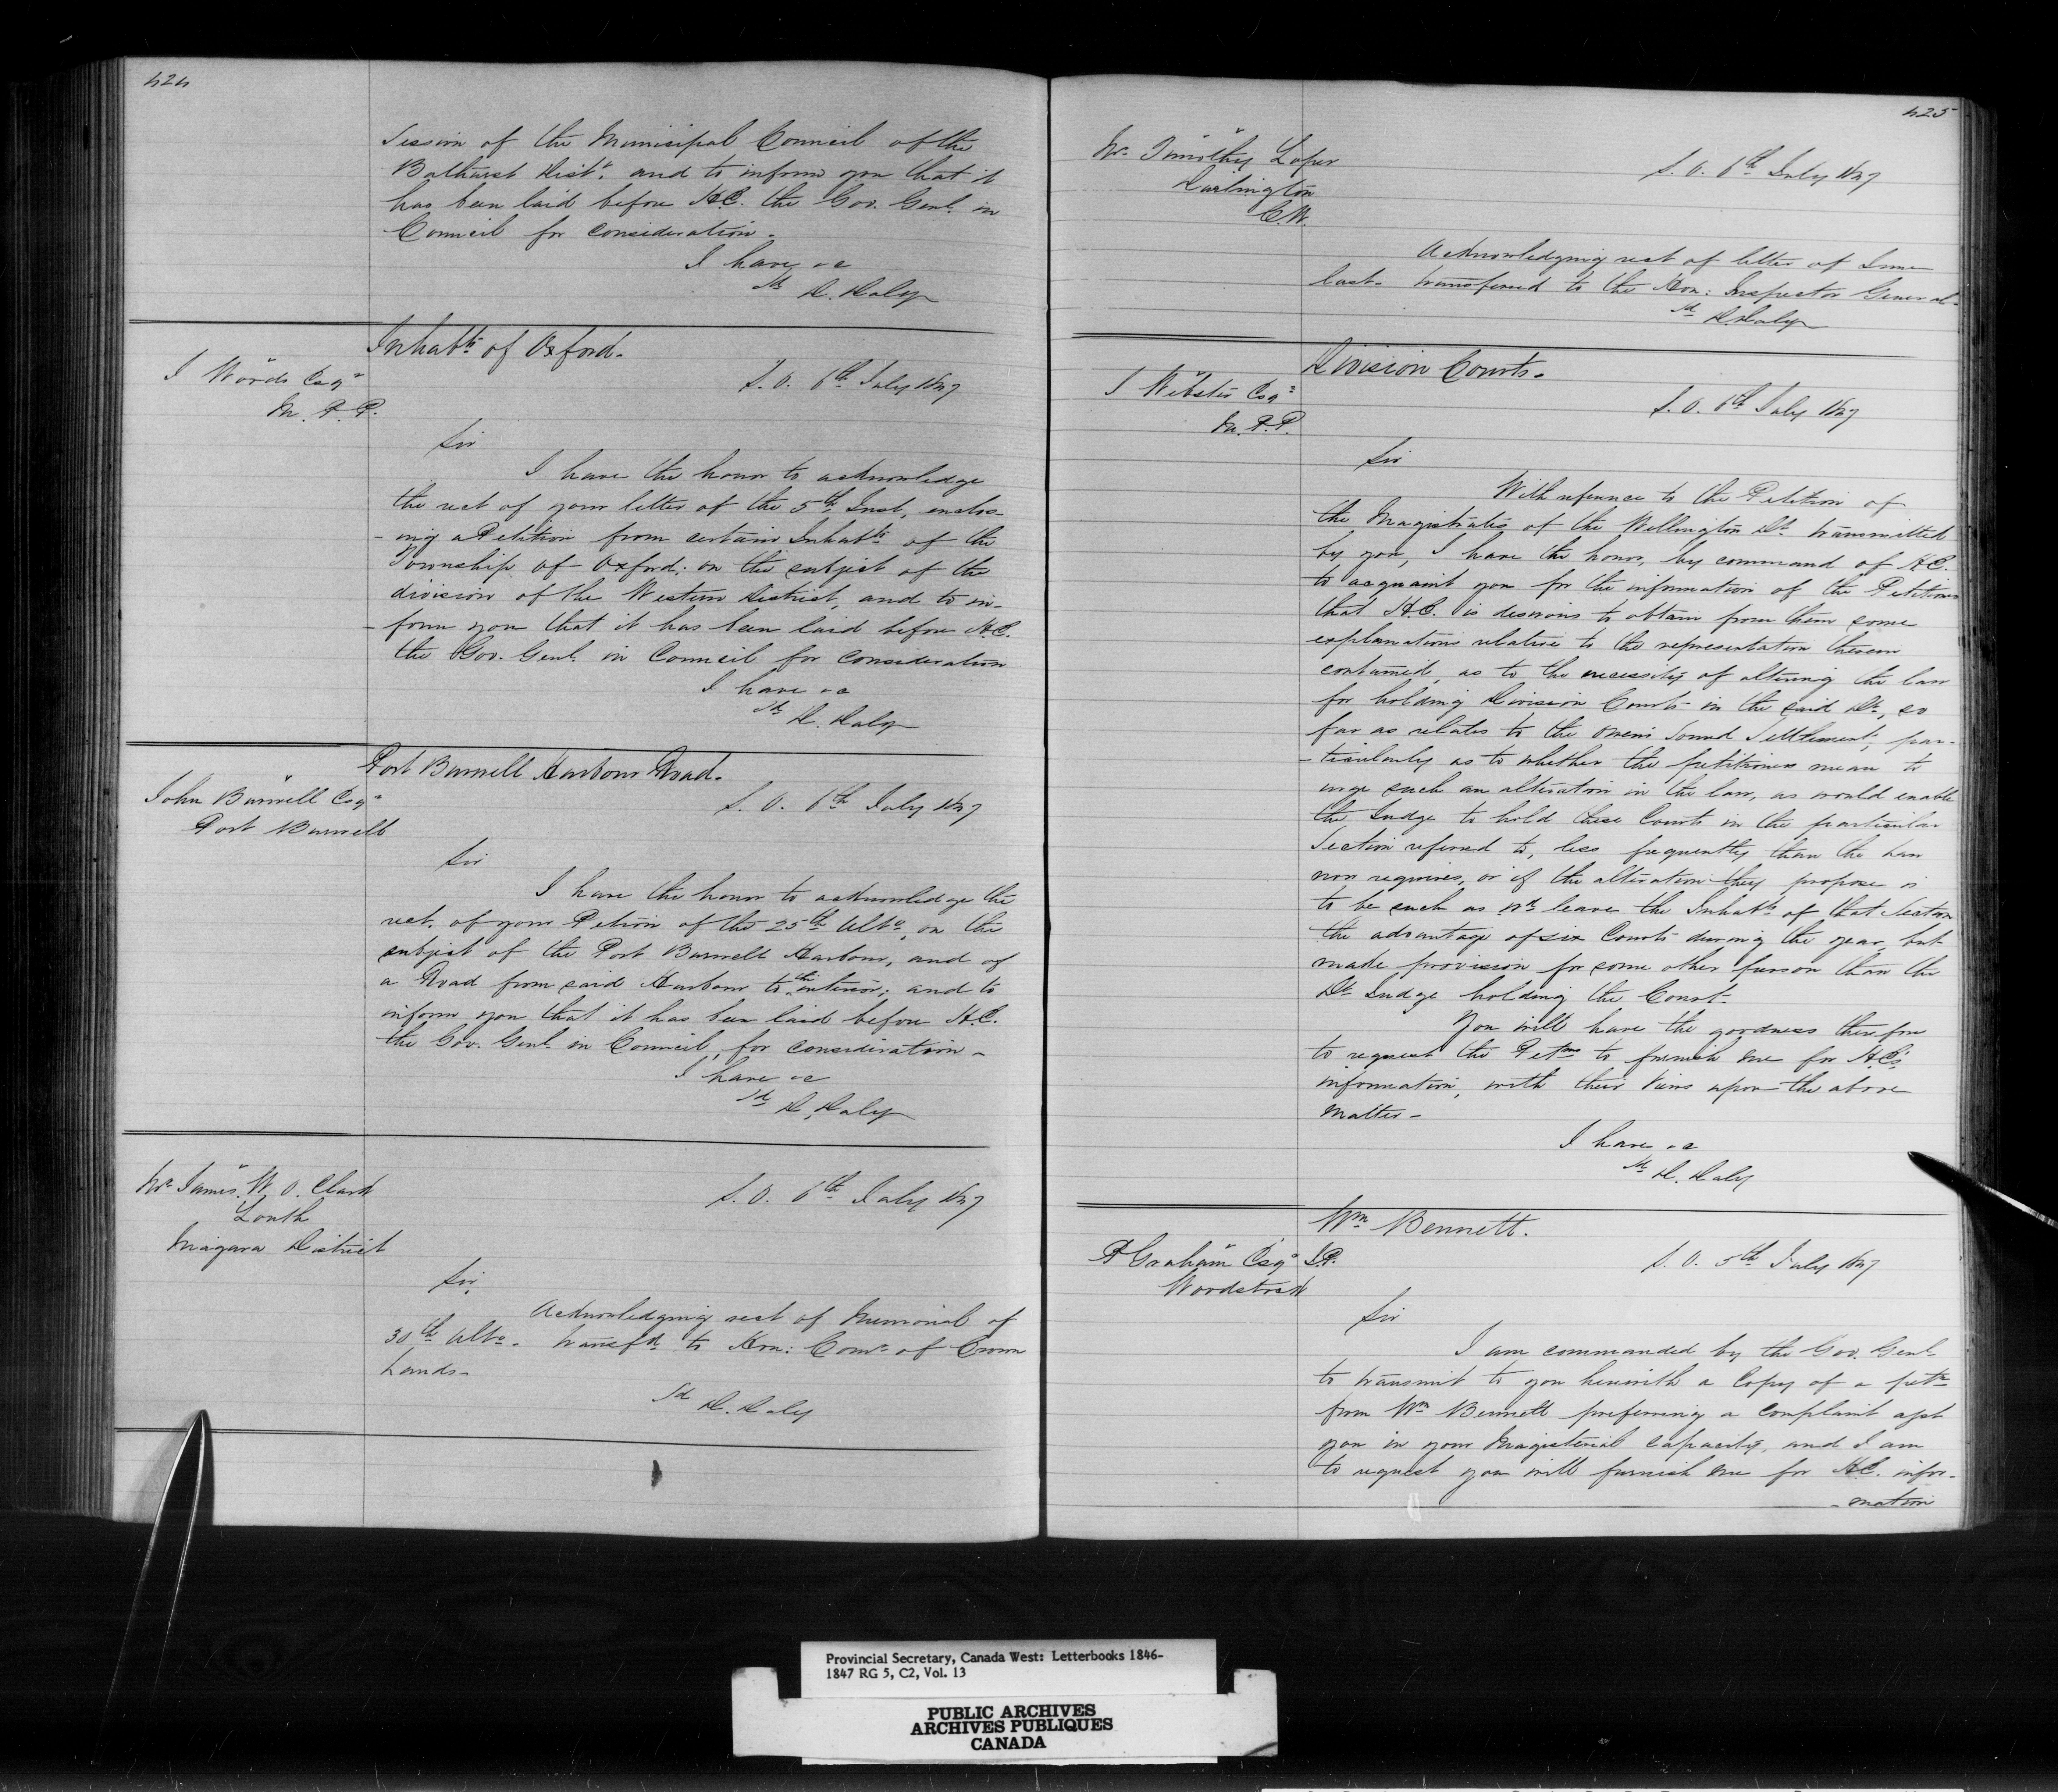 424
Session of the Municipal Council of the
Bathurst Distt. and to inform you that it
has been laid before H.E. the Gov. Genl. in
Council for consideration.
I have &c
Sd D. Daly
Inhabts of Oxford.
J Woods Esqr
M. P. P.
S. O. 6th July 1847
Sir
I have the honor to acknowledge
the rect of your letter of the 5th Inst, enclos-
-ing a Petition from certain Inhabts of the
Township of Oxford; on the subject of the
division of the Western District, and to in-
-form you that it has been laid before H.E.
the Gov. Genl. in Council for consideration
I have &c
Sd D. Daly
Port Burwell Harbour Road.
John Burwell Esqr
Port Burwell
S. O. 6th July 1847
Sir
I have the honor to acknowledge the
rect. of your Petion of the 25th Ulto, on the
subject of the Port Burwell Harbour, and of
a Road from said Harbour to the interior; and to
inform you that it has been laid before H.E.
the Gov. Genl. in Council, for consideration -
I have &c
Sd D. Daly
Mr James W. O. Clark
Louth
Niagara District
S. O. 6th July 1847
Sir,
Acknowledging rect of Memorial of
30th Ulto. transfd to Hon: Comr of Crown
Lands -
Sd D. Daly
425
Mr Timothy
Darlington
C.W.
S. O. 6th July 1847
Acknowledging rect of letter of June
last - transferred to the Hon: Inspector General -
Sd D. Daly
Division Courts.
J Webster Esqr
M. P. P.
S. O. 6th July 1847
Sir
With reference to the Petition of
the Magistrates of the Wellington Dt. transmitted
by you, I have the honor, by command of H.E.
to acquaint you for the information of the Petitioners
that H.E. is desirous to obtain from them some
explanations relative to the representation therein
contained, as to the necessity of altering the law
for holding Division Courts in the said Dt., so
far as relates to the Owens Sound Settlement, par-
-ticularly as to whether the petitioners mean to
urge such an alteration in the law, as would enable
the Judge to hold these Courts in the particular
Section referred to, less frequently than the Law
now requires, or if the alteration they propose is
to be such as wd leave the Inhabts of that Section
the advantage of six Courts during the year, but
made provision for some other person than the
Dt Judge holding the Court -
You will have the goodness therefore
to request the Petrs to furnish me for H.E's
information, with their views upon the above
matter -
I have &c
Sd D. Daly
Wm Bennett.
P Graham Esqr J.P.
Woodstock
S. O. 5th July 1847
Sir
I am commanded by the Gov. Genl.
to transmit to you herewith a Copy of a petn
from Wm Bennett preferring a complaint agst
you in your Magisterial capacity, and I am
to request you will furnish me for H.E. infor-
-mation
Provincial Secretary, Canada West: Letterbooks 1846-
1847 RG 5, C2, Vol. 13
PUBLIC ARCHIVES
ARCHIVES PUBLIQUES
CANADA